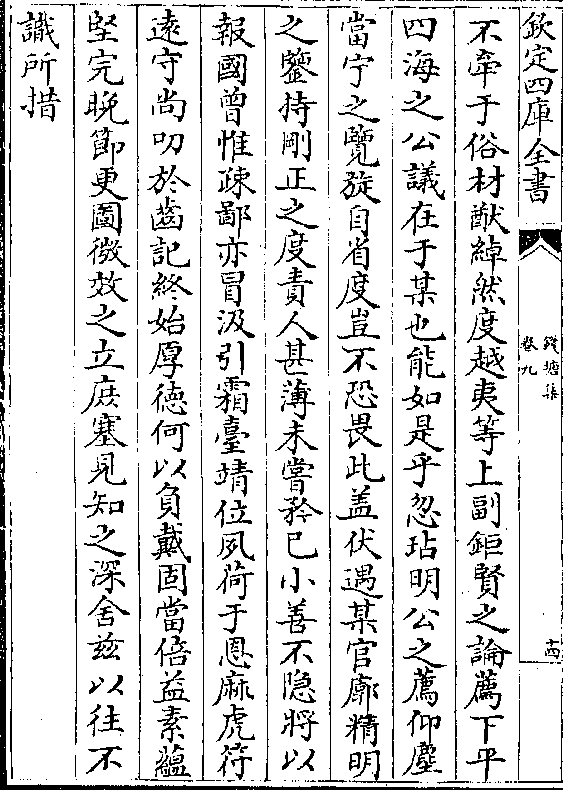 欽定四庫全書
錢塘集
卷九
十四
不牽于俗材猷綽然度越夷等上副鉅賢之論薦下平
四海之公議在于某也能如是乎忽玷明公之薦仰塵
當宁之覽旋自省度豈不恐畏此盖伏遇某官廓精明
之鑒持剛正之度責人甚薄未嘗矜已小善不隐將以
報國曾惟疎鄙亦冒汲引霜臺靖位夙荷于恩庥虎符
逺守尚叨於齒記終始厚徳何以負戴固當倍益素藴
堅完晚節更圖微效之立庶塞見知之深舍兹以往不
識所措